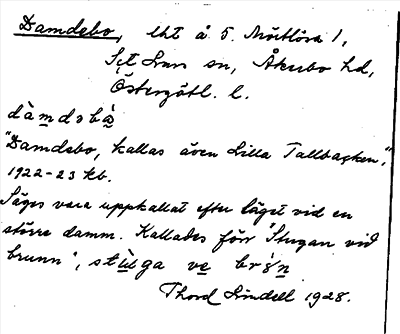 Damdebo, lht å S. Mörtlösa 1,
S:t Lars sn, Åkerbo hd,
Östergötl. l.
dàmdəbà
"Damdebo, kallas även Lilla Tallbacken,"
1922-23 kb.
Säges vara uppkallat efter läget vid en
större damm. Kallades förr "Stugan vid
brunn", stùga ve brún
Thord Lindell 1928.